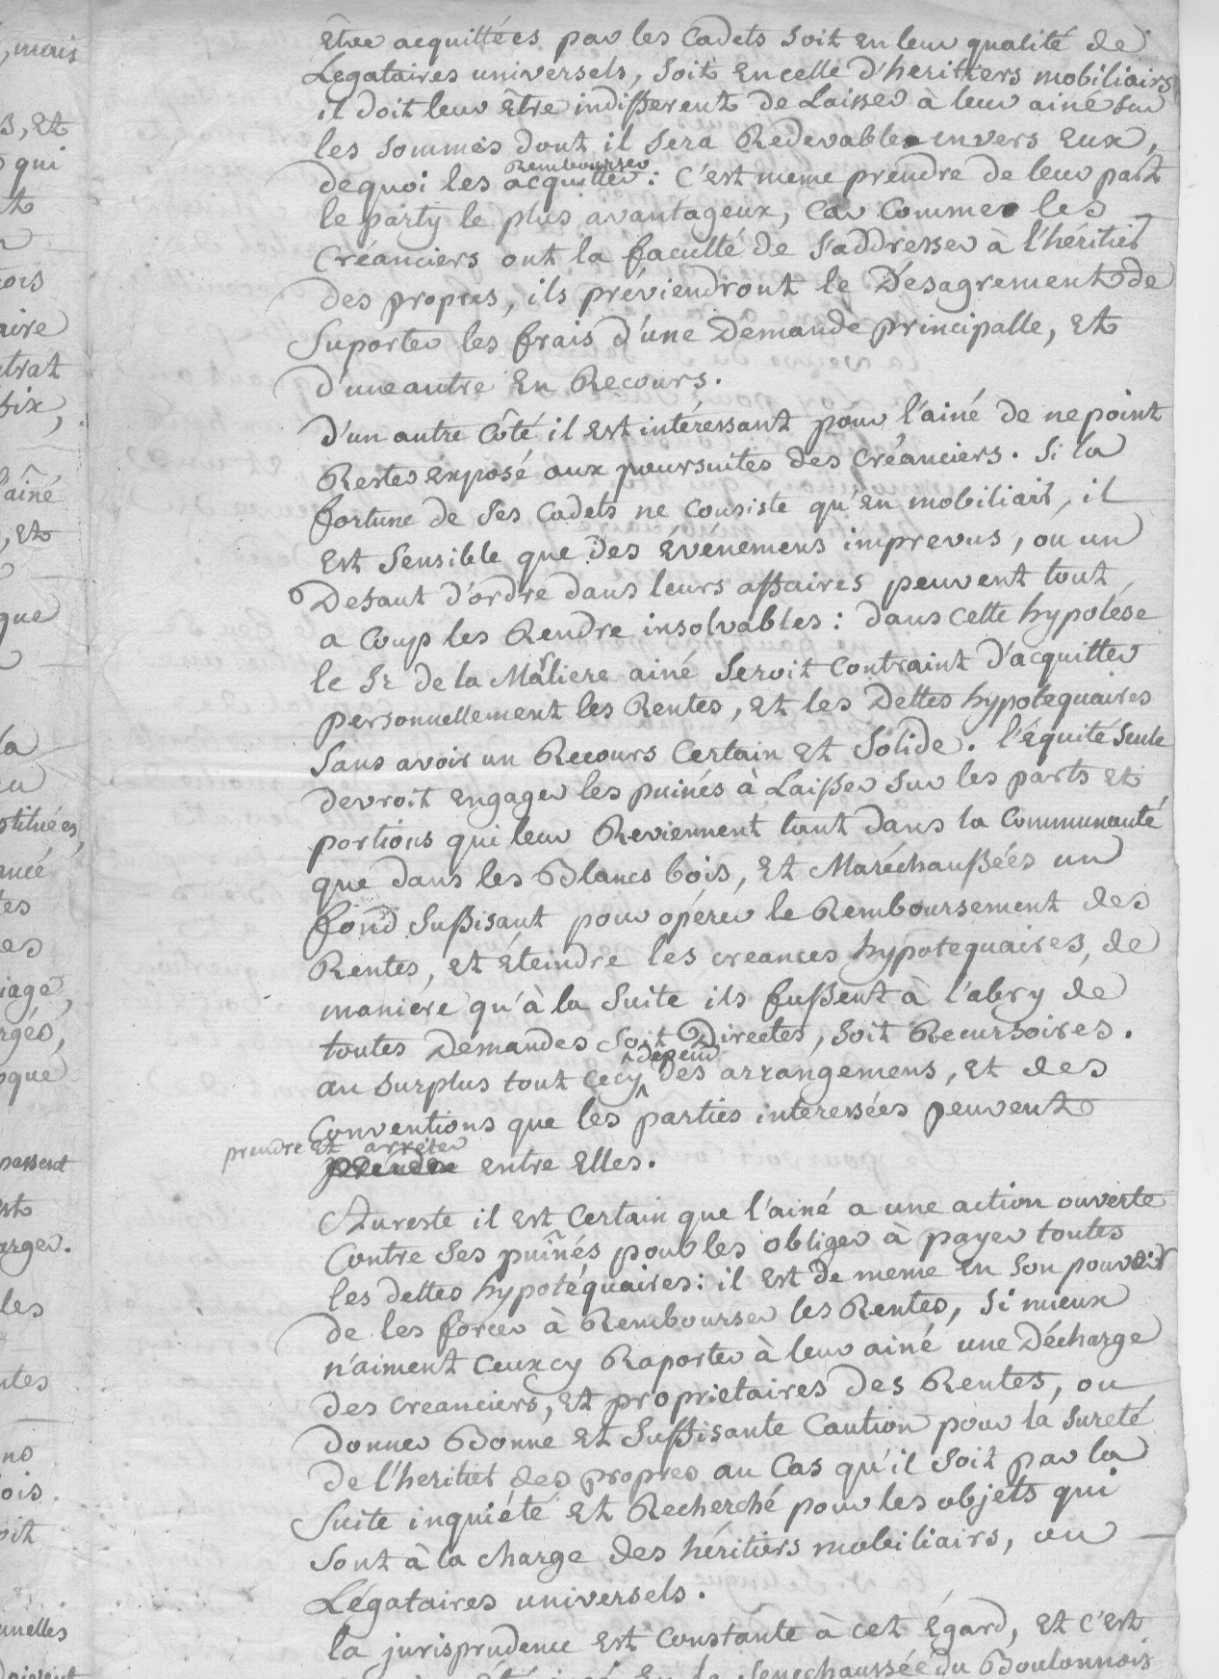 être acquittées par les Cadets soit en leur qualité de
Legataires universels, soit en celle d'heritiers mobiliairs
il doit leur être indifferent de laisser à leur ainé sur
les sommes dont il sera Redevable envers Eux,
de quoi les acquitter Rembourser : C'est meme prendre de leur part
le party le plus avantageux, Car Comme les
Créanciers ont la faculté de s'addresser à l'héritier
des propres, ils préviendront le Désagrement de
Suporter les frais d'une Demande principalle, Et
d'une autre En Recours.
D'un autre Côté il Est intéressant pour l'ainé de ne point
Rester Exposé aux poursuites des Créanciers. Si la
fortune de ses Cadets ne Consiste qu'En mobiliair, il
Est Sensible que des Événemens imprevus, ou un
Defaut d'ordre dans leurs affaires peuvent tout
a Coup les Rendre insolvables : dans cette hypotése
le Sr de la ainé Seroit Contraint d'acquitter
personnellement les Rentes, Et les Dettes hypotequaires
Sans avoir un Recours Certain Et Solide. l'Équité Seule
devroit Engager les puinés à Laisser sur les parts Et
portions qui leur Reviennent tant dans la Communauté
que dans les Blancs bois, Et Maréchaussées un
fond Suffisant pour opérer le Remboursement des
Rentes, Et Éteindre les creances hypotequaires, de
maniere qu'à la Suite ils fussent à l'abry de
toutes Demandes soit Directes, soit Recursoires.
au Surplus tout Cecy depend des arrangemens, Et des
Conventions que les parties interessées peuvent
prendre Et arrêter
prendre entre Elles.
Au reste il Est Certain que l'ainé a une action ouverte
Contre Ses puînés pour les obliger à payer toutes
les dettes hypotéquaires : il Est de meme En Son pouvoir
de les forcer à Rembourser les Rentes, Si mieux
n'aiment Ceux cy Raporter à leur ainé une Décharge
des Creanciers, Et proprietaires des Rentes, ou
donner Bonne Et Suffisante Caution pour la Sureté
de l'heritier des propres au Cas qu'il Soit par la
Suite inquiété Et Recherché pour les objets qui
Sont à la Charge des héritiers mobiliairs, ou
Légataires universels.
la jurisprudence Est Constante à cet Égard, Et C'est
En la Senechaussée du Boulonnois
, mais
s, Et
qui
aire
l'ainé
, Et
que
la
les